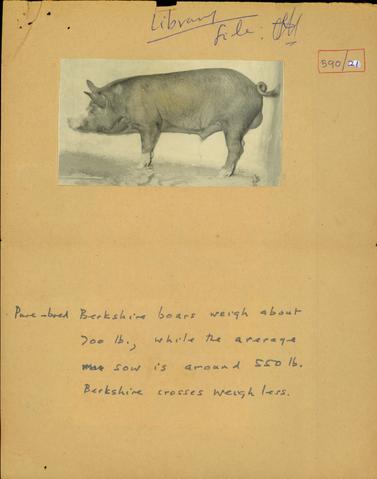 Library
file:
590/21
Pure-bred Berkshire boars weigh about
700 lb., while the average
sow is around 550 lb.
Berkshire crosses weigh less.